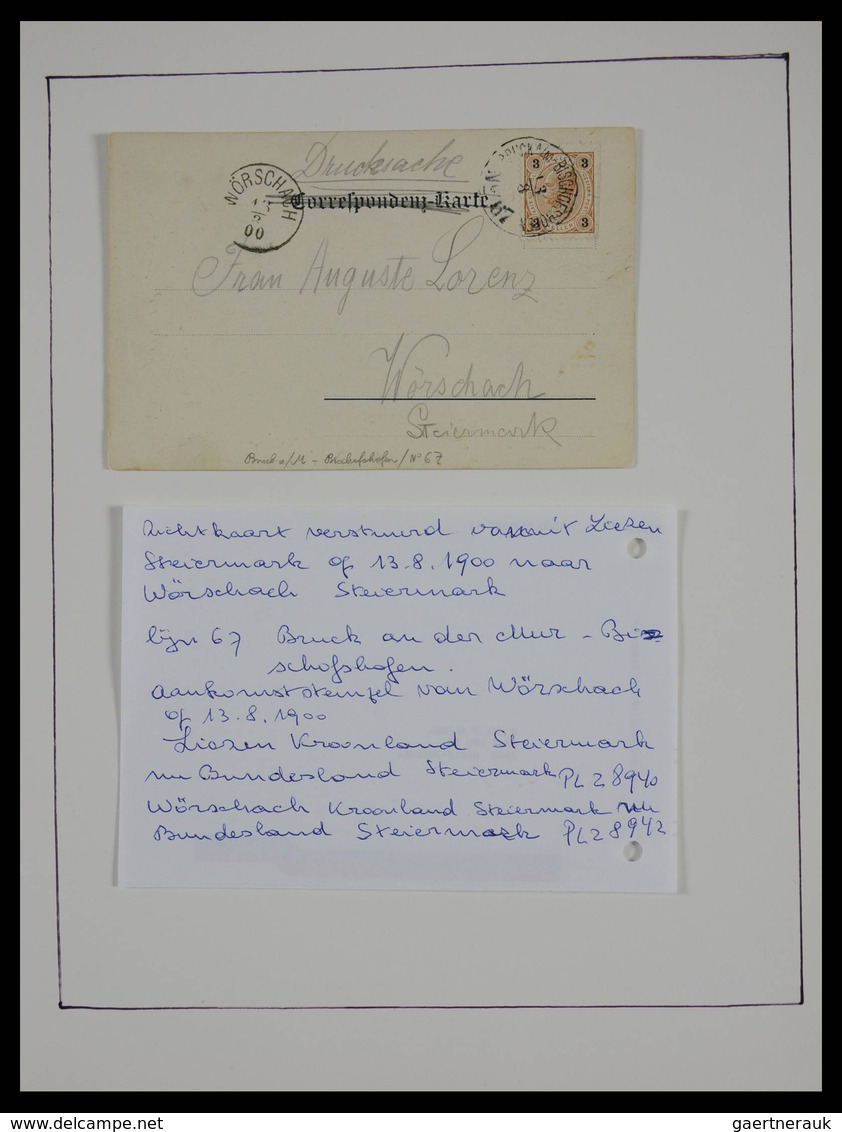 Drucksache
WÖRSCHACH
13
8
00
Correspondenz-Karte
BRUCK A/M-BISCHOFSHOFEN
13
8
67
3 3
3 3
Frau Auguste Lorenz
Wörschach
Steiermark
Bruck a/M - Bischofshofen / No 67
Zichtkaart verstuurd vanuit Liezen
Steiermark op 13.8.1900 naar
Wörschach Steiermark
lijn 67 Bruck an der Mur - Bi-
schofshofen.
Aankomststempel van Wörschach
op 13.8.1900
Liezen Kroonland Steiermark
nu Bundesland Steiermark PLZ 8940
Wörschach Kroonland Steiermark nu
Bundesland Steiermark PLZ 8942
www.delcampe.net
gaertnerauk